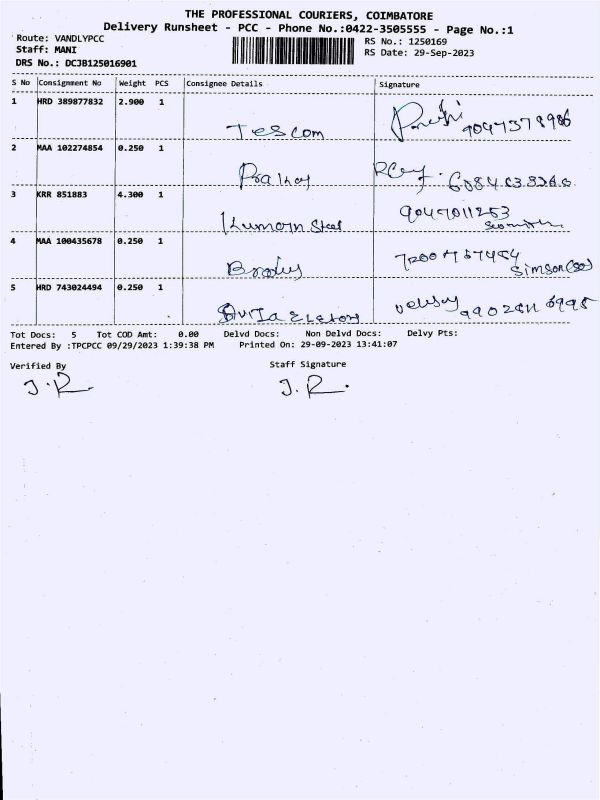 THE PROFESSIONAL COURIERS, COIMBATORE
Delivery Runsheet - PCC - Phone No.:0422-3505555 - Page No.:1
Route: VANDLYPCC
RS No.: 1250169
Staff: MANI
RS Date: 29-Sep-2023
DRS No.: DCJB125016901
S No Consignment No Weight PCS Consignee Details Signature
1 HRD 389877832 2.900 1
Tescom
2 MAA 102274854 0.250 1
3 KRR 851883 4.300 1
9047011253
Steel
4 MAA 100435678 0.250 1
Simson
5 HRD 743024494 0.250 1
Tot Docs: 5 Tot COD Amt: 0.00 Delvd Docs: Non Delvd Docs: Delvy Pts:
Entered By :TPCPCC 09/29/2023 1:39:38 PM Printed On: 29-09-2023 13:41:07
Verified By Staff Signature
J.R. J.R.